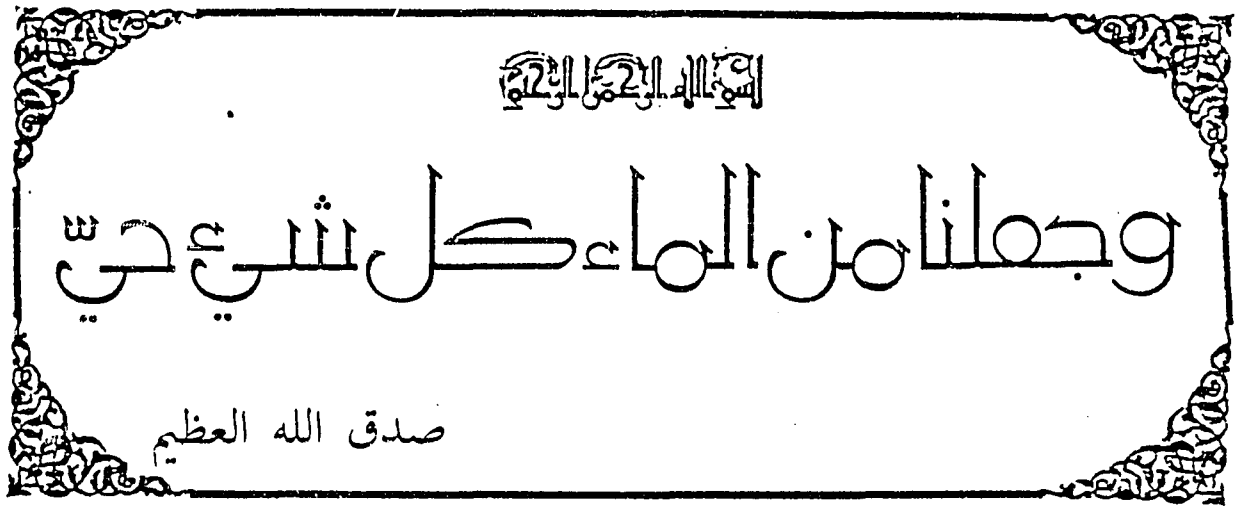 بسم الله الرحمن الرحيم
وجعلنا من الماء كل شيئ حيّ
صدق الله العظيم